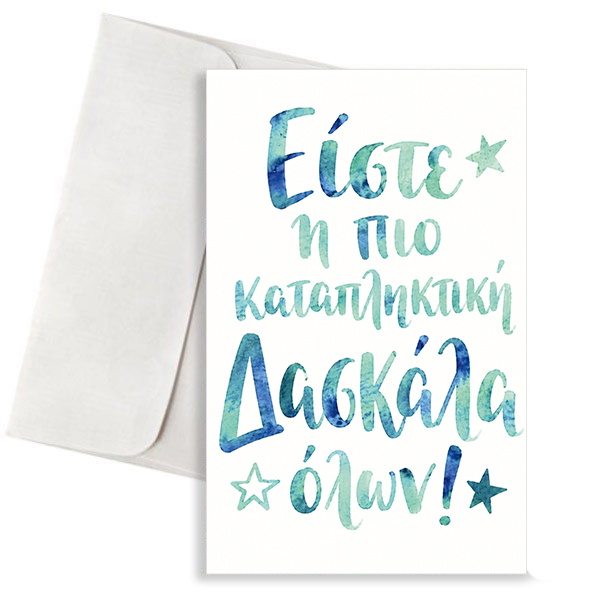 Είστε
η πιο
καταπληκτική
Δασκάλα
όλων!